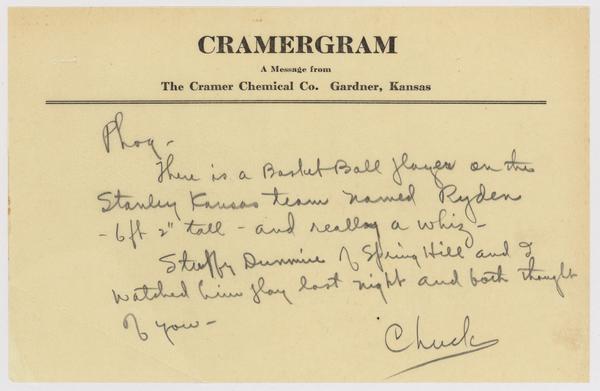 CRAMERGRAM
A Message from
The Cramer Chemical Co. Gardner, Kansas
Phog -
There is a Basket Ball player on the
Stanley Kansas team named Ryden
- 6ft 2" tall - and really a whiz -
Stuffy Dunmire of Spring Hill and I
watched him play last night and both thought
of you -
Chuck